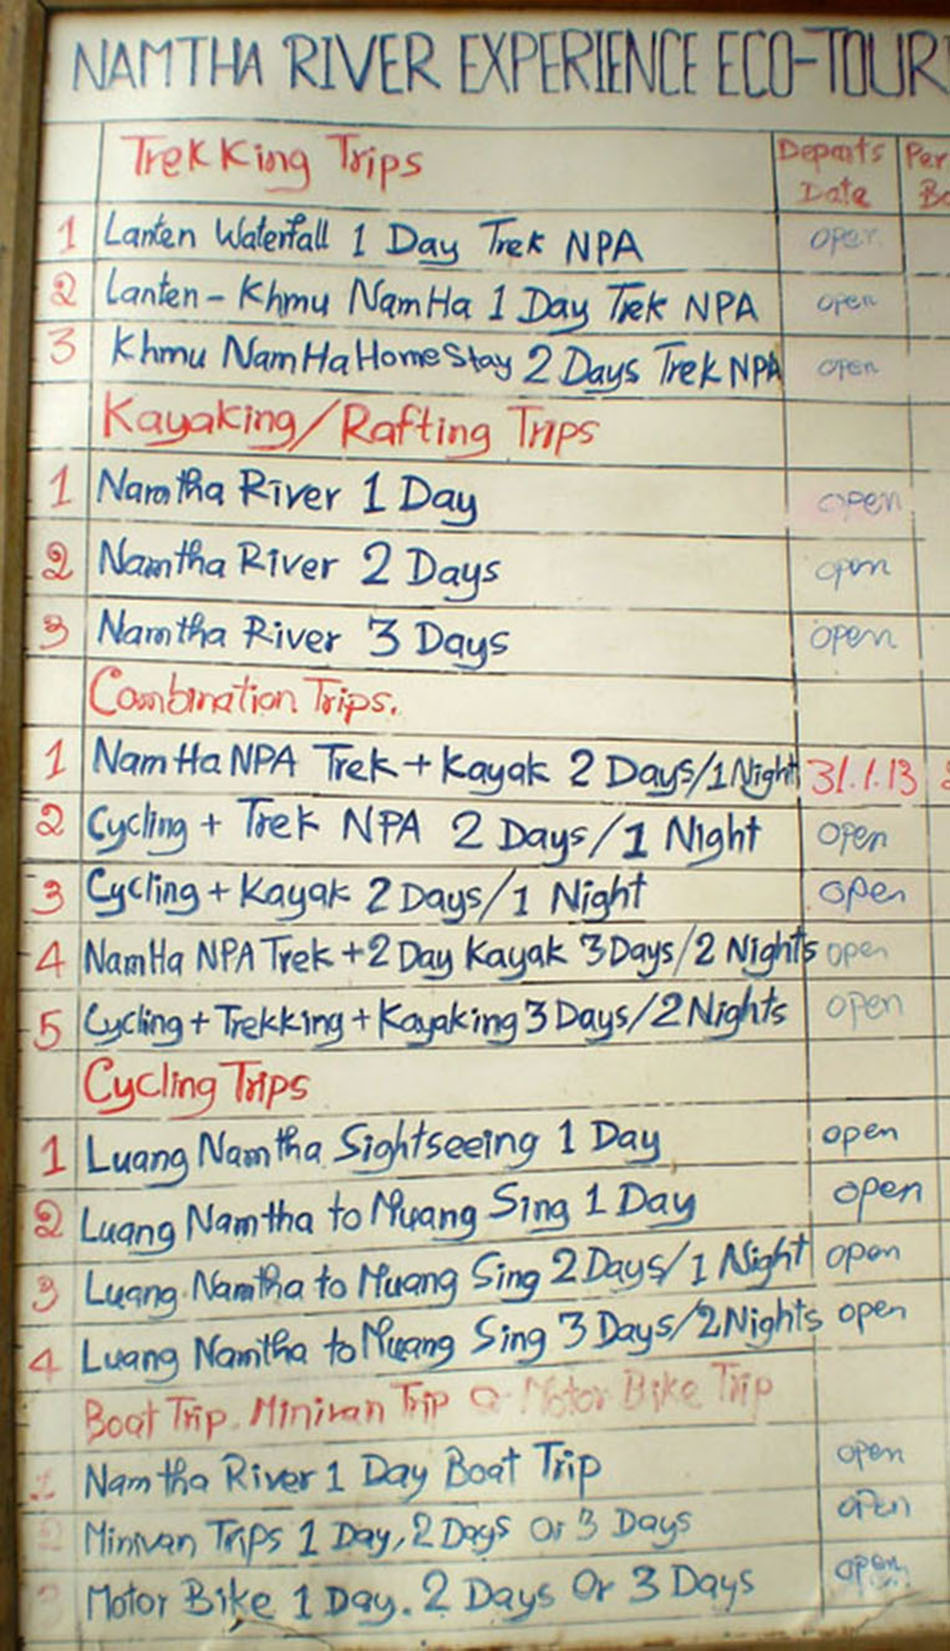 NAMTHA RIVER EXPERIENCE ECO-TOUR
Trekking Trips Departs Date Per
1 Lanten Waterfall 1 Day Trek NPA open
2 Lanten - Khmu NamHa 1 Day Trek NPA open
3 Khmu NamHa HomeStay 2 Days Trek NPA open
Kayaking/Rafting Trips
1 Namtha River 1 Day open
2 Namtha River 2 Days open
3 Namtha River 3 Days open
Combination Trips.
1 NamHa NPA Trek + Kayak 2 Days/1 Night 31.1.13
2 Cycling + Trek NPA 2 Days/1 Night open
3 Cycling + Kayak 2 Days/1 Night open
4 NamHa NPA Trek + 2 Day Kayak 3 Days/2 Nights open
5 Cycling + Trekking + Kayaking 3 Days/2 Nights open
Cycling Trips
1 Luang Namtha Sightseeing 1 Day open
2 Luang Namtha to Muang Sing 1 Day open
3 Luang Namtha to Muang Sing 2 Days/1 Night open
4 Luang Namtha to Muang Sing 3 Days/2 Nights open
Boat Trip. Minivan Trip Motor Bike Trip
1 Namtha River 1 Day Boat Trip open
2 Minivan Trips 1 Day, 2 Days Or 3 Days open
3 Motor Bike 1 Day. 2 Days Or 3 Days open